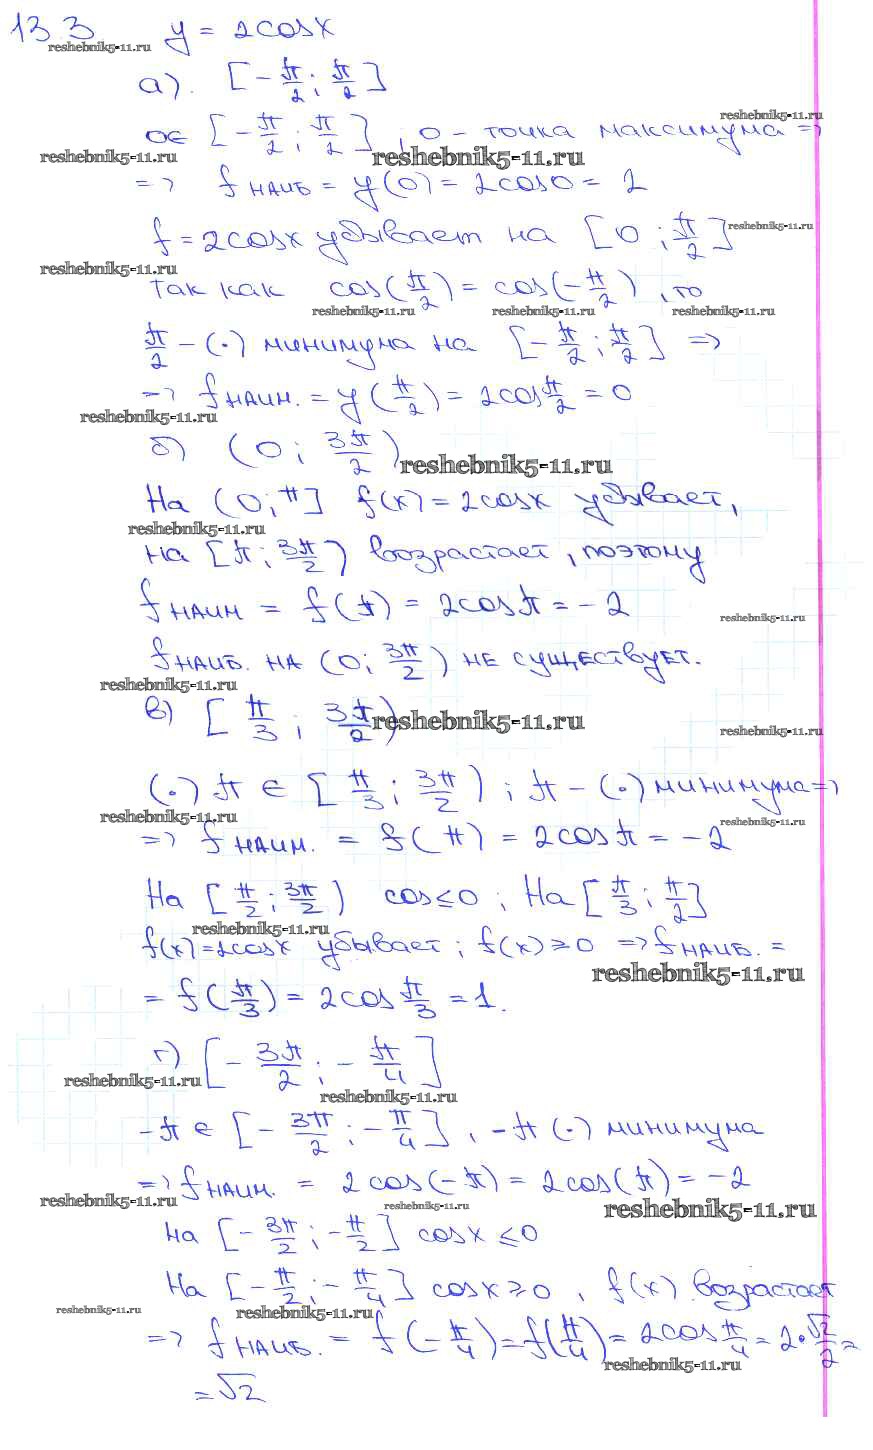 13.3 y = 2cosx
reshebnik5-11.ru
а). [-π/2; π/2]
reshebnik5-11.ru
0∈ [-π/2; π/2], 0 - точка максимума =>
reshebnik5-11.ru reshebnik5-11.ru
=> f наиб = y(0) = 2cos0 = 2
f = 2cosx убывает на [0; π/2]
reshebnik5-11.ru
reshebnik5-11.ru
так как cos(π/2) = cos(-π/2), то
reshebnik5-11.ru reshebnik5-11.ru reshebnik5-11.ru
π/2 - (·) минимума на [-π/2; π/2] =>
=> f наим. = y(π/2) = 2cos π/2 = 0
reshebnik5-11.ru
б) (0; 3π/2)
reshebnik5-11.ru
На (0; π] f(x) = 2cosx убывает,
reshebnik5-11.ru
на [π; 3π/2) возрастает, поэтому
f наим = f(π) = 2cosπ = -2
reshebnik5-11.ru
f наиб. на (0; 3π/2) не существует.
reshebnik5-11.ru
в) [π/3; 3π/2)
reshebnik5-11.ru
reshebnik5-11.ru
(·) π ∈ [π/3; 3π/2); π - (·) минимума =>
reshebnik5-11.ru reshebnik5-11.ru
=> f наим. = f(π) = 2cosπ = -2
На [π/2; 3π/2) cos≤0; На [π/3; π/2]
reshebnik5-11.ru
f(x) = 2cosx убывает; f(x) ≥ 0 => f наиб. =
reshebnik5-11.ru
= f(π/3) = 2cos π/3 = 1.
г) [-3π/2; -π/4]
reshebnik5-11.ru
reshebnik5-11.ru
-π ∈ [-3π/2; -π/4], -π (·) минимума
=> f наим. = 2cos(-π) = 2cos(π) = -2
reshebnik5-11.ru reshebnik5-11.ru reshebnik5-11.ru
на [-3π/2; -π/2] cosx ≤ 0
На [-π/2; -π/4] cosx ≥ 0, f(x) возрастает
reshebnik5-11.ru reshebnik5-11.ru
=> f наиб. = f(-π/4) = f(π/4) = 2cos π/4 = 2·√2/2 =
reshebnik5-11.ru
= √2